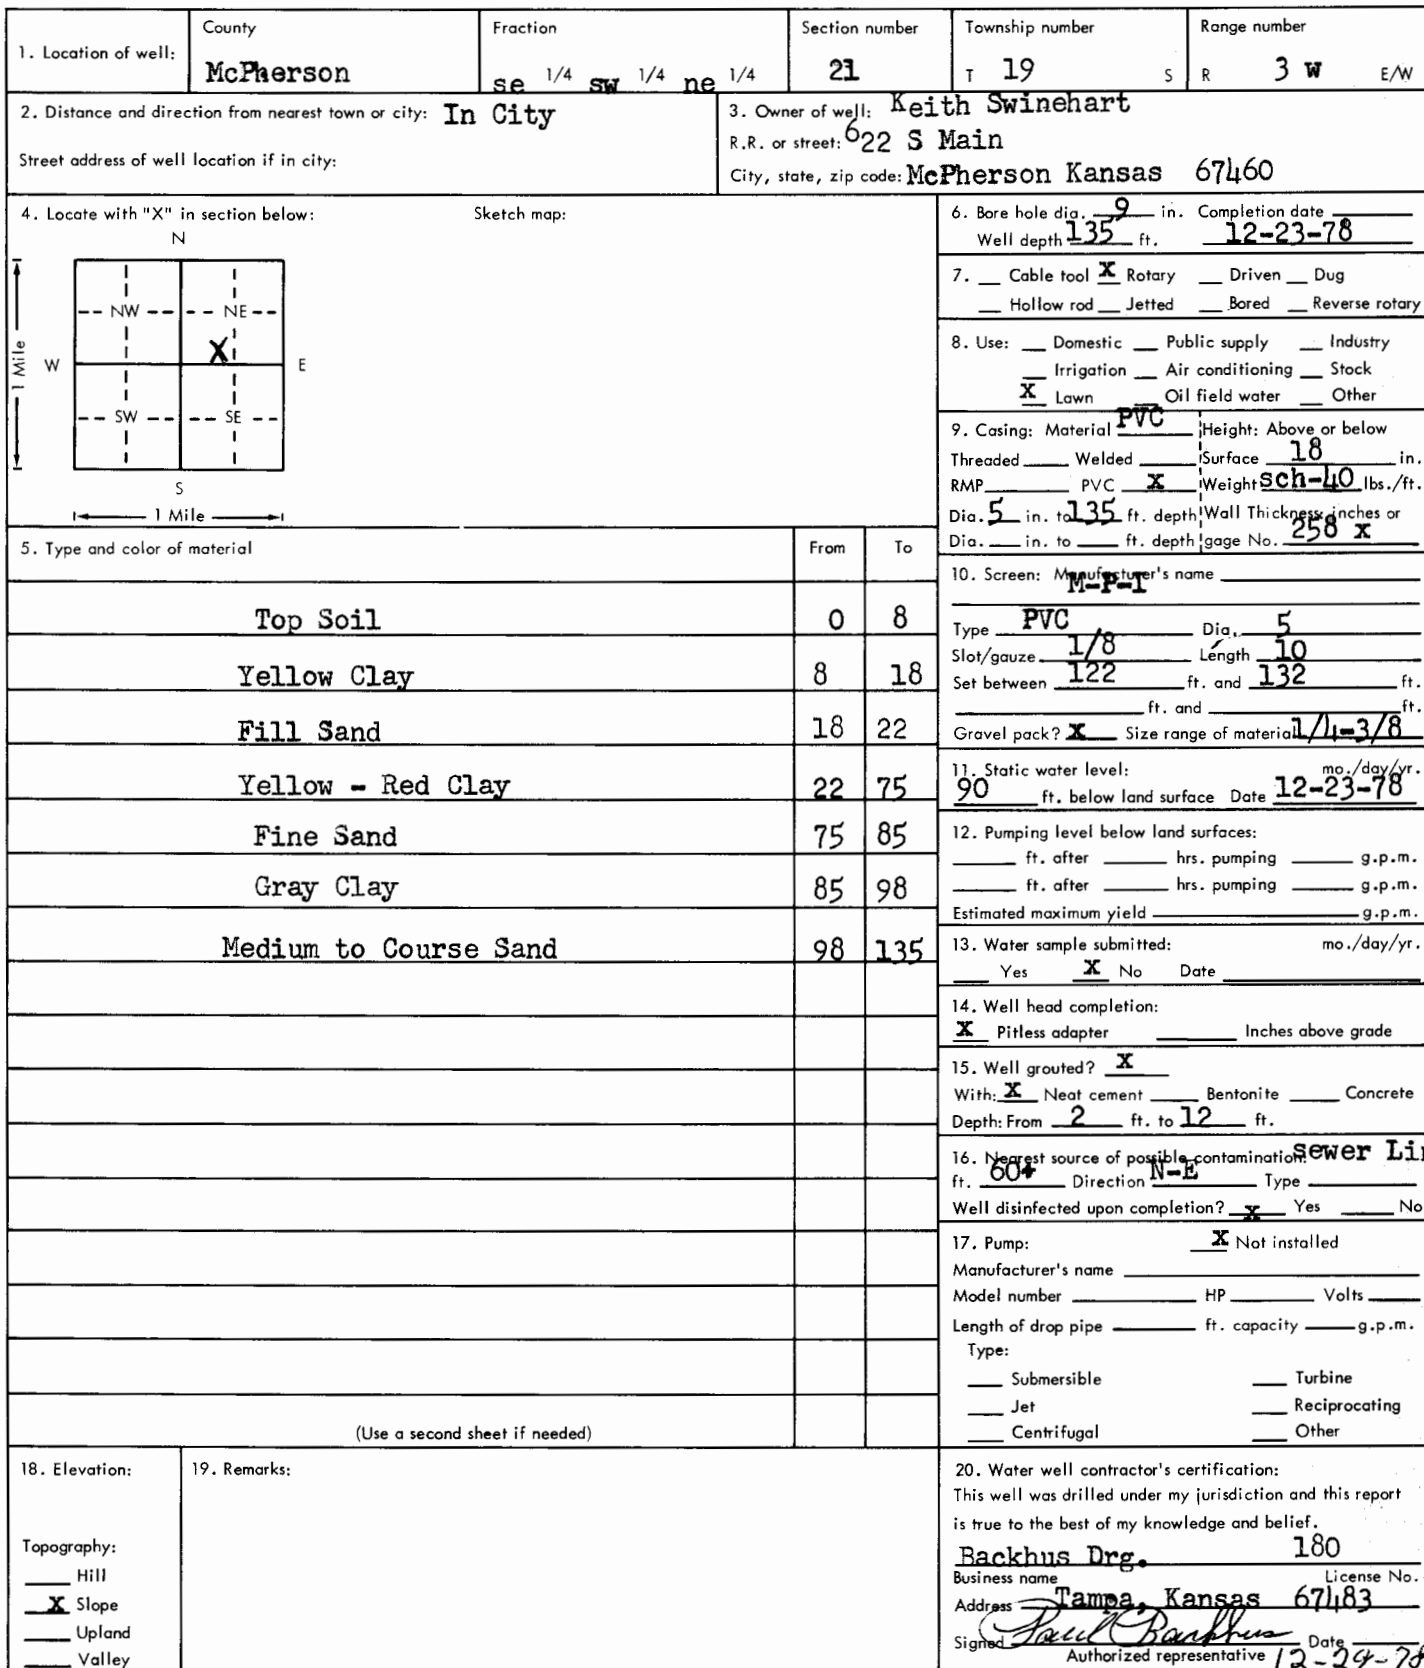 1. Location of well:
County
McPherson
Fraction
se 1/4 sw 1/4 ne 1/4
Section number
21
Township number
T 19 S
Range number
R 3 W E/W
2. Distance and direction from nearest town or city: In City
Street address of well location if in city:
3. Owner of well: Keith Swinehart
R.R. or street: 622 S Main
City, state, zip code: McPherson Kansas 67460
4. Locate with "X" in section below:
Sketch map:
N
NW NE
X
W E
1 Mile
SW SE
S
1 Mile
5. Type and color of material From To
Top Soil 0 8
Yellow Clay 8 18
Fill Sand 18 22
Yellow - Red Clay 22 75
Fine Sand 75 85
Gray Clay 85 98
Medium to Course Sand 98 135
(Use a second sheet if needed)
6. Bore hole dia. 9 in. Completion date
Well depth 135 ft. 12-23-78
7. Cable tool X Rotary Driven Dug
Hollow rod Jetted Bored Reverse rotary
8. Use: Domestic Public supply Industry
Irrigation Air conditioning Stock
X Lawn Oil field water Other
9. Casing: Material PVC Height: Above or below
Threaded Welded Surface 18 in.
RMP PVC X Weight sch-40 lbs./ft.
Dia. 5 in. to 135 ft. depth Wall Thickness inches or
Dia. in. to ft. depth gage No. 258 x
10. Screen: Manufacturer's name
M-P-I
Type PVC Dia. 5
Slot/gauze 1/8 Length 10
Set between 122 ft. and 132 ft.
ft. and ft.
Gravel pack? X Size range of material 1/4-3/8
11. Static water level: mo./day/yr.
90 ft. below land surface Date 12-23-78
12. Pumping level below land surfaces:
ft. after hrs. pumping g.p.m.
ft. after hrs. pumping g.p.m.
Estimated maximum yield g.p.m.
13. Water sample submitted: mo./day/yr.
Yes X No Date
14. Well head completion:
X Pitless adapter Inches above grade
15. Well grouted? X
With: X Neat cement Bentonite Concrete
Depth: From 2 ft. to 12 ft.
16. Nearest source of possible contamination: sewer Lin
ft. 60+ Direction N-E Type
Well disinfected upon completion? X Yes No
17. Pump: X Not installed
Manufacturer's name
Model number HP Volts
Length of drop pipe ft. capacity g.p.m.
Type:
Submersible Turbine
Jet Reciprocating
Centrifugal Other
18. Elevation:
Topography:
Hill
X Slope
Upland
Valley
19. Remarks:
20. Water well contractor's certification:
This well was drilled under my jurisdiction and this report
is true to the best of my knowledge and belief.
Backhus Drg. 180
Business name License No.
Address Tampa, Kansas 67483
Signed Paul Backhus Date
Authorized representative 12-29-78